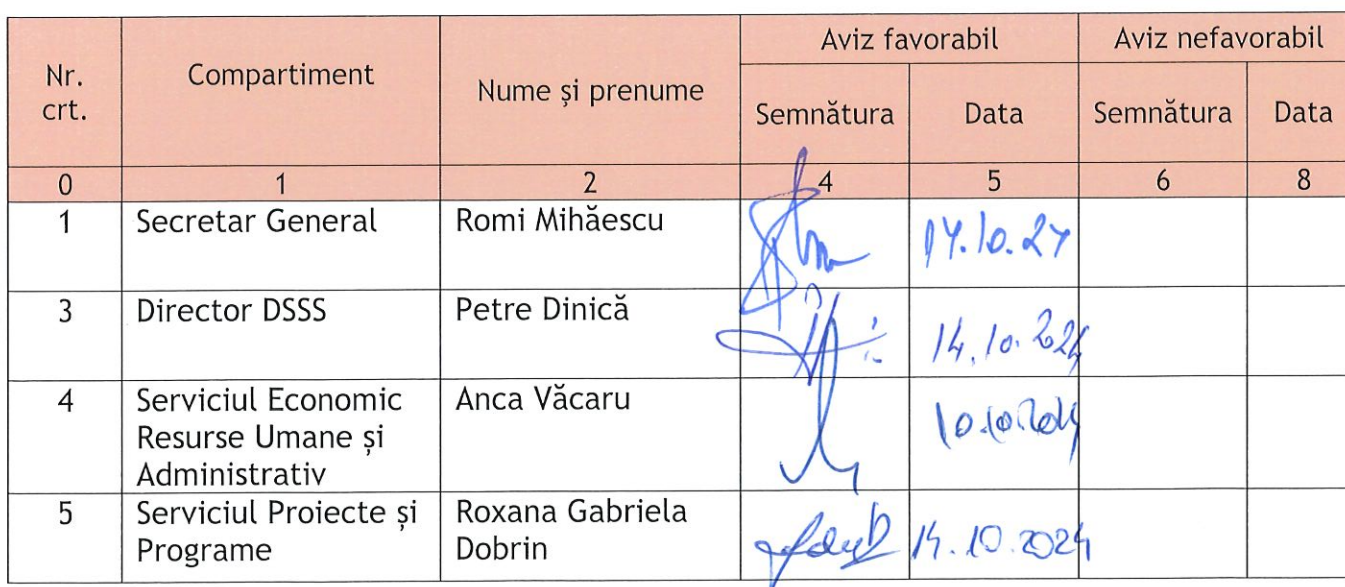 Nr. crt.
Compartiment
Nume și prenume
Aviz favorabil
Aviz nefavorabil
Semnătura
Data
Semnătura
Data
0
1
2
4
5
6
8
1
Secretar General
Romi Mihăescu
14.10.24
3
Director DSSS
Petre Dinică
14.10.2024
4
Serviciul Economic
Resurse Umane și
Administrativ
Anca Văcaru
10.10.2024
5
Serviciul Proiecte și
Programe
Roxana Gabriela
Dobrin
14.10.2024